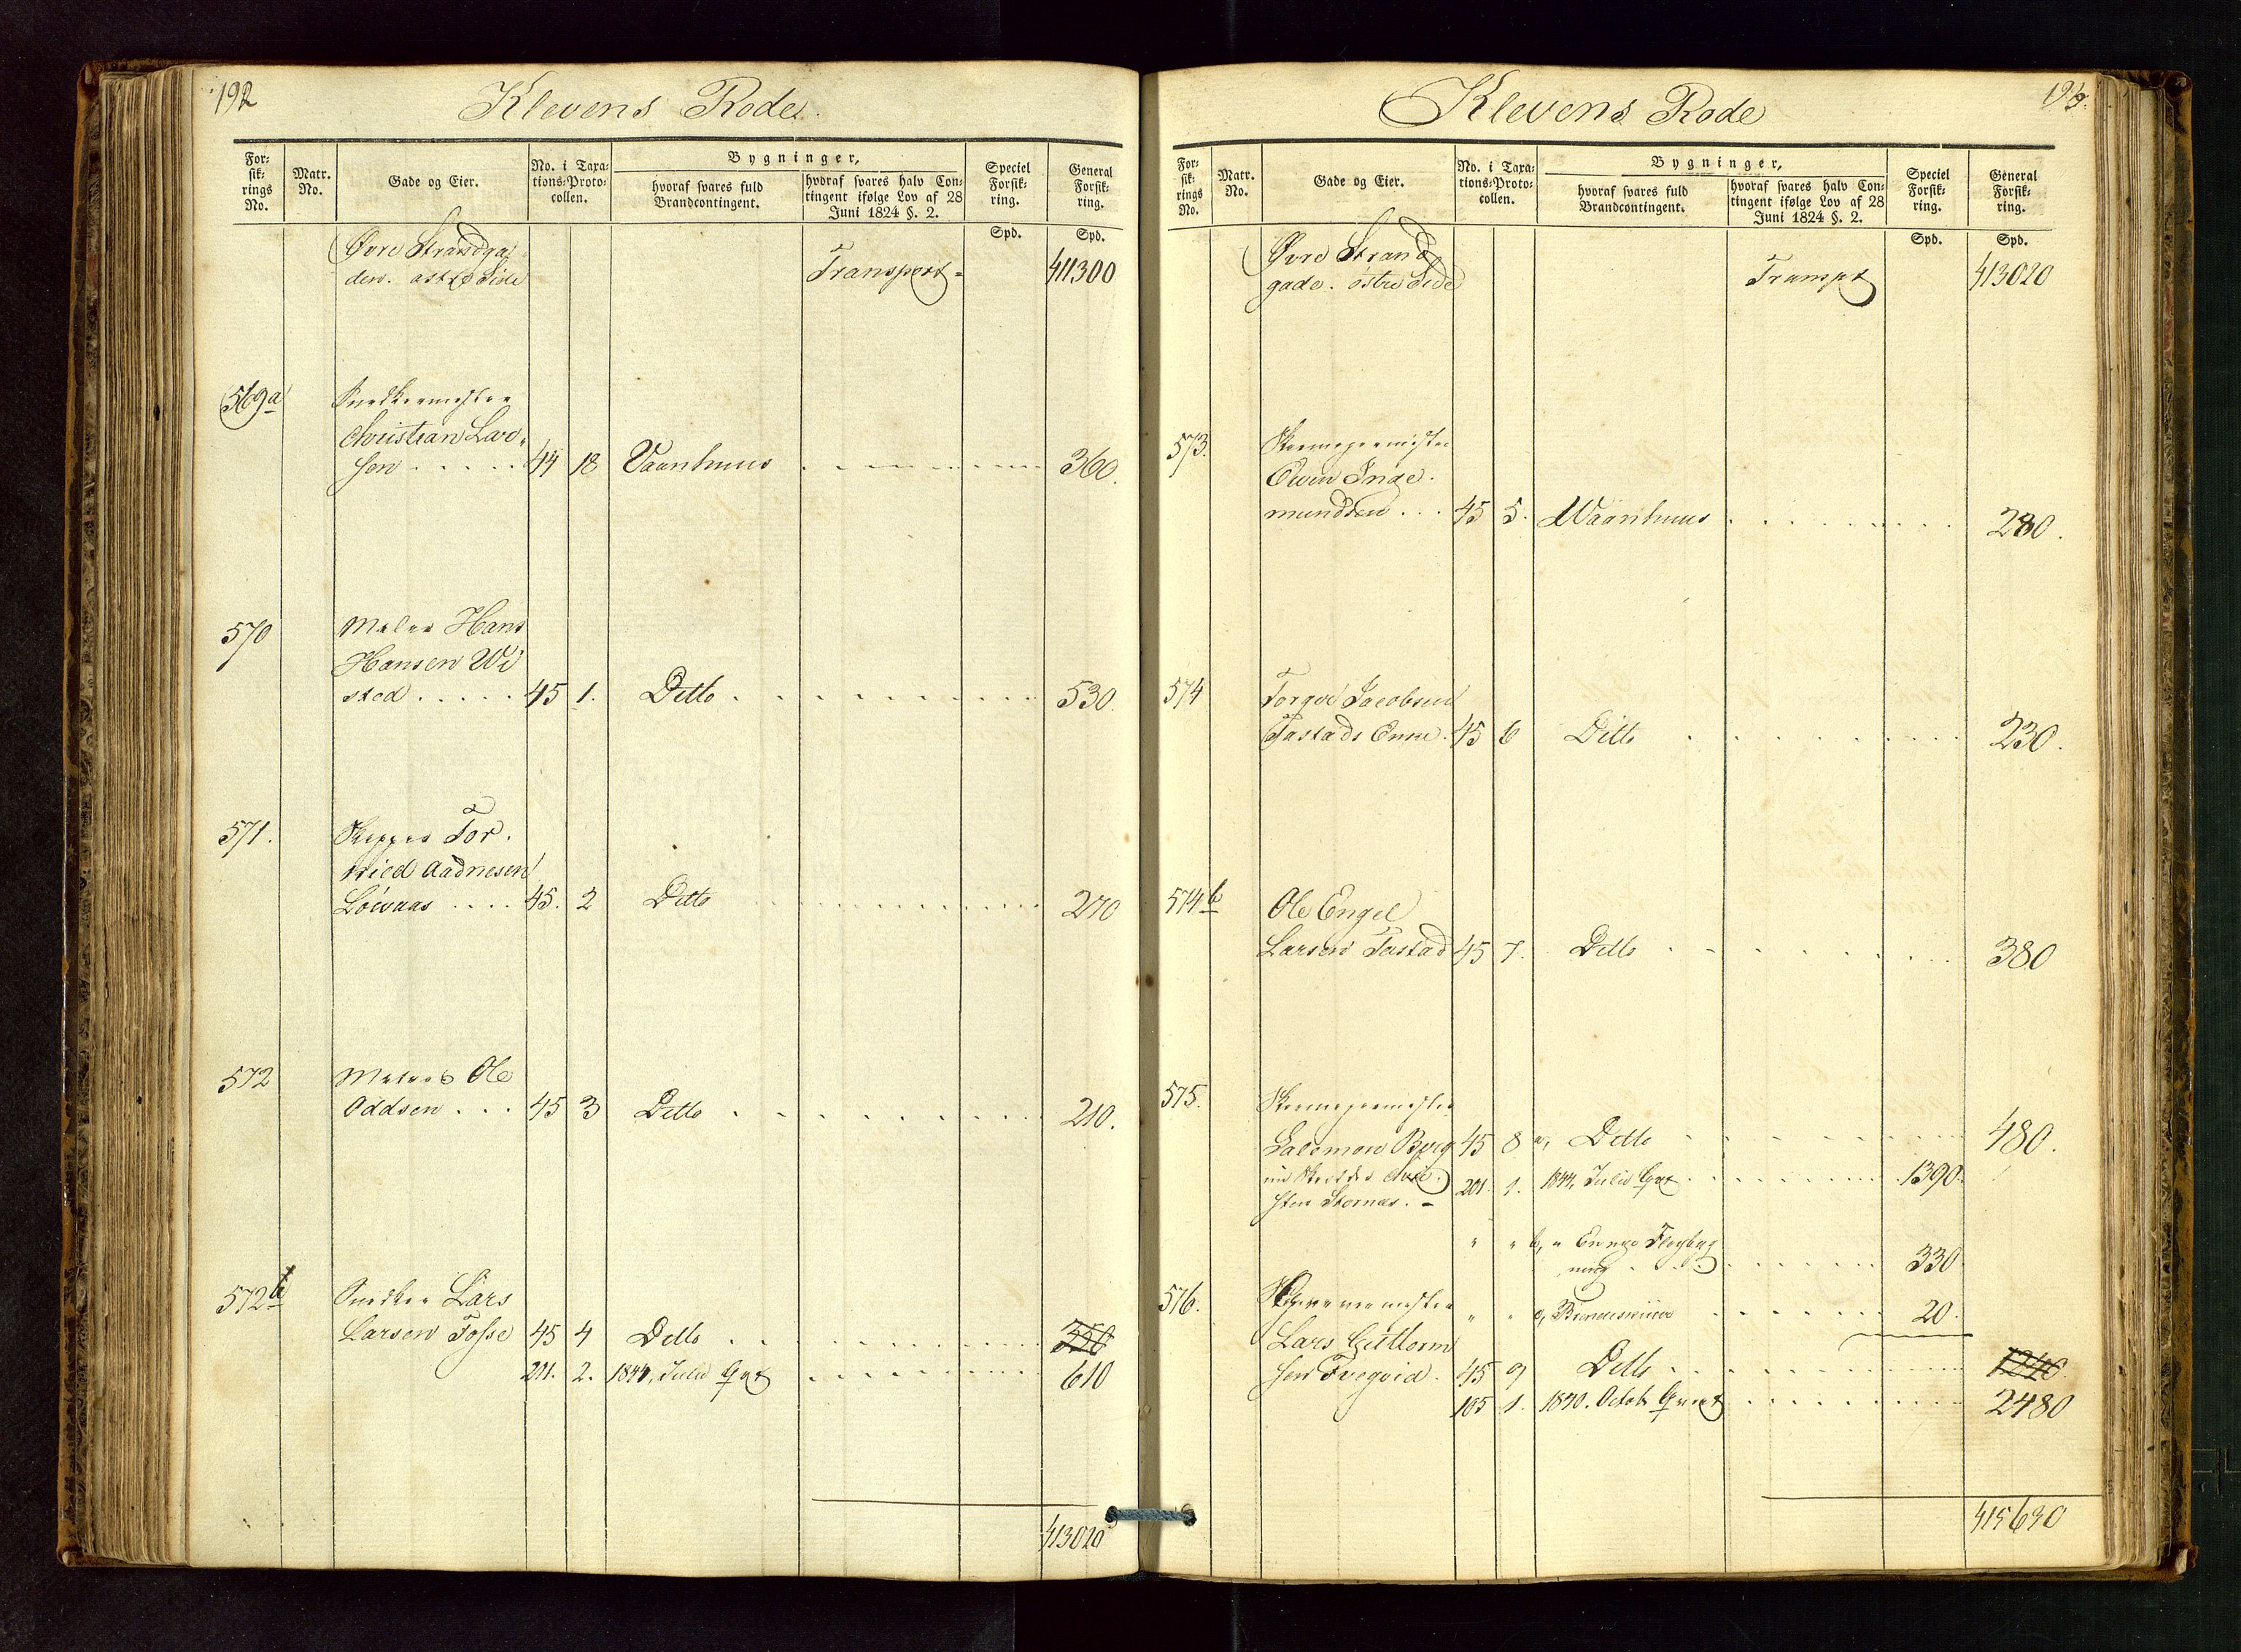 192
Klevens Rode.
For:
sik:
rings
No.
Matr.
No.
Gade og Eier.
No. i Taxa:
tions:Proto:
collen.
Bygninger,
hvoraf svares fuld
Brandcontingent.
hvoraf svares halv Con:
tingent ifølge Lov af 28
Juni 1824 §. 2.
Speciel
Forsik:
ring.
General
Forsik:
ring.
Spd.
Spd.
Øvre Strandga
den. østre Side
Transport - 411300
569a Snedkermester
Christian Lar-
sen . . . . . 44 18 Vaanhuus 360.
570 Maler Hans
Hansen Wi
sted . . . . . 45 1. Ditto 530.
571. Skipper Tor.
kield Aadnesen
Løevaas . . . . 45. 2 Ditto 270
572 Ole
Oddsen . . . 45 3 Ditto 210.
572b Snedker Lars
Larsen Fosse 45 4 Ditto 350
201. 2. 1844, Julii Qvt 610
413020
Klevens Rode
For:
sik:
rings
No.
Matr.
No.
Gade og Eier.
No. i Taxa:
tions:Proto:
collen.
Bygninger,
hvoraf svares fuld
Brandcontingent.
hvoraf svares halv Con:
tingent ifølge Lov af 28
Juni 1824 §. 2.
Speciel
Forsik:
ring.
General
Forsik:
ring.
Spd.
Spd.
Øvre Strand
gade. østre Side
Transpt 413020
573. Skomagermester
Owen Inge.
mundsen . . . 45 5. Waanhuus 280.
574 Torger Jacobsen
Tastads Enke. 45 6 Ditto 230.
574b Ole Engel
Larsen Tastad 45 7. Ditto 380
575. Skomagermester
Salomon Berg 45 8 a, Ditto 480.
nu
sten Stornæs. - 201. 1. 1844, Julii Qvt 1390.
" " b, 330.
576. " " c, 20.
Lars Guttorm
sen Tvegvid. 45 9 Ditto 1240.
105 1. 1840. Octob Qvart 2480
415630